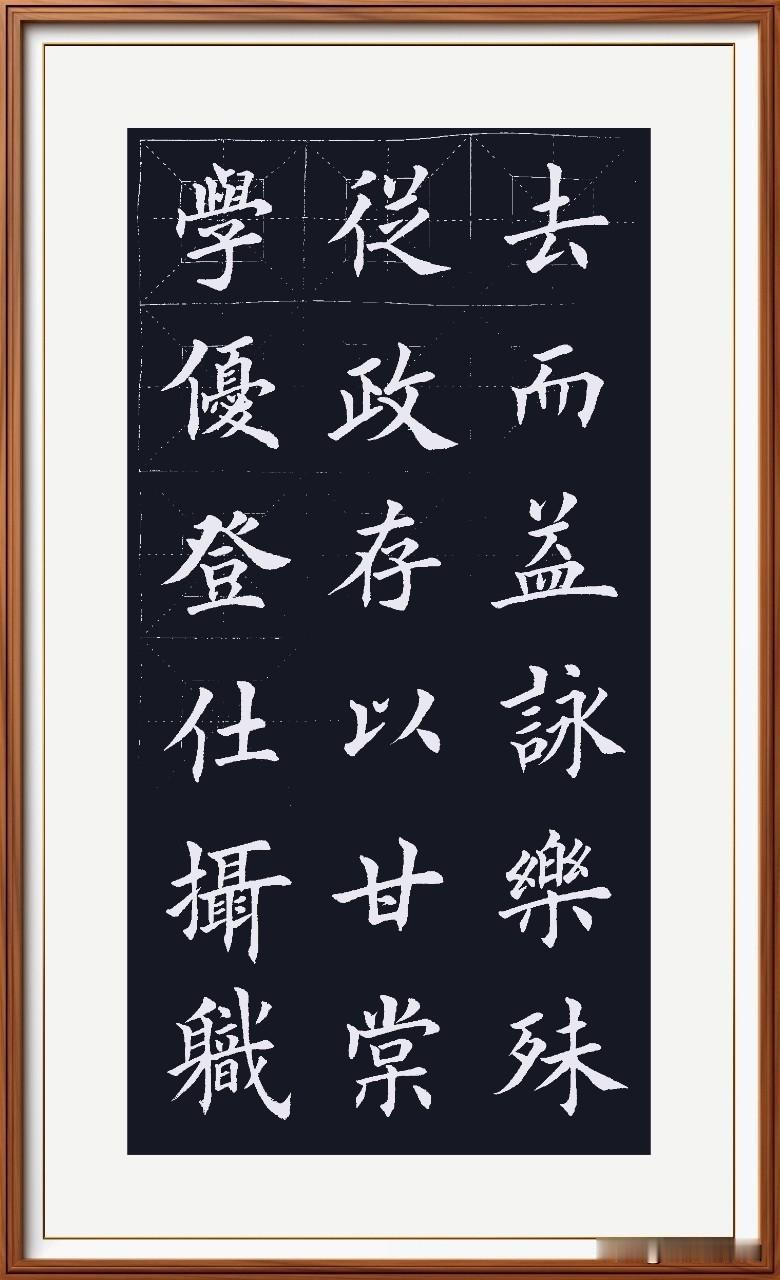 學優登仕攝軄
従政存以甘棠
去而益詠樂殊